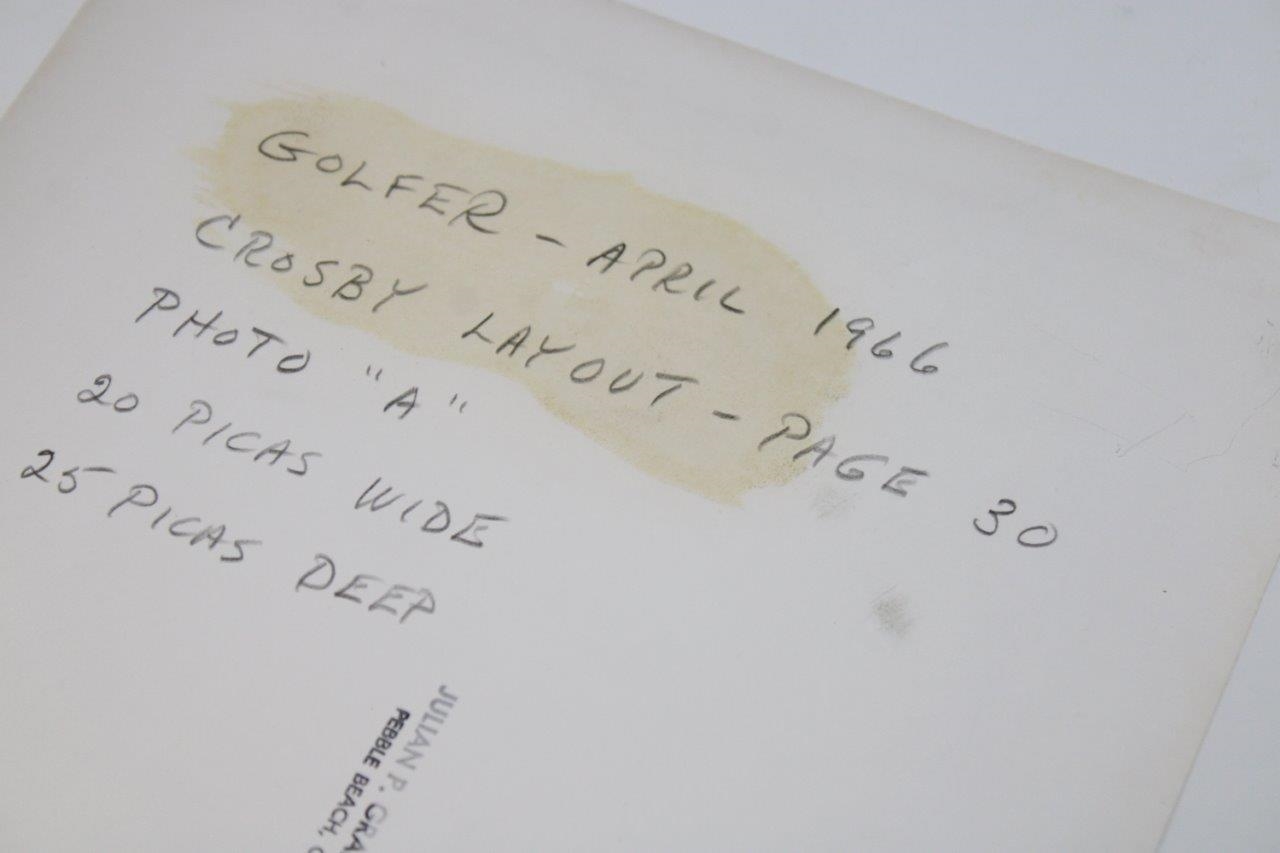 GOLFER - APRIL 1966
CROSBY LAYOUT - PAGE 30
PHOTO "A"
20 PICAS WIDE
25 PICAS DEEP
JULIAN P. GRA
PEBBLE BEACH,